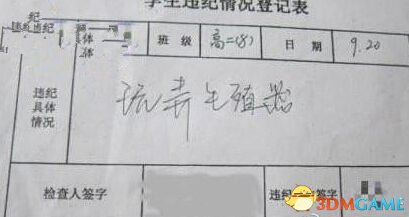 学生违纪情况登记表
违纪 班级 高二(8) 日期 9.20
违纪
具体
情况
玩弄生殖器
检查人签字 违纪 签字
3DMGAME